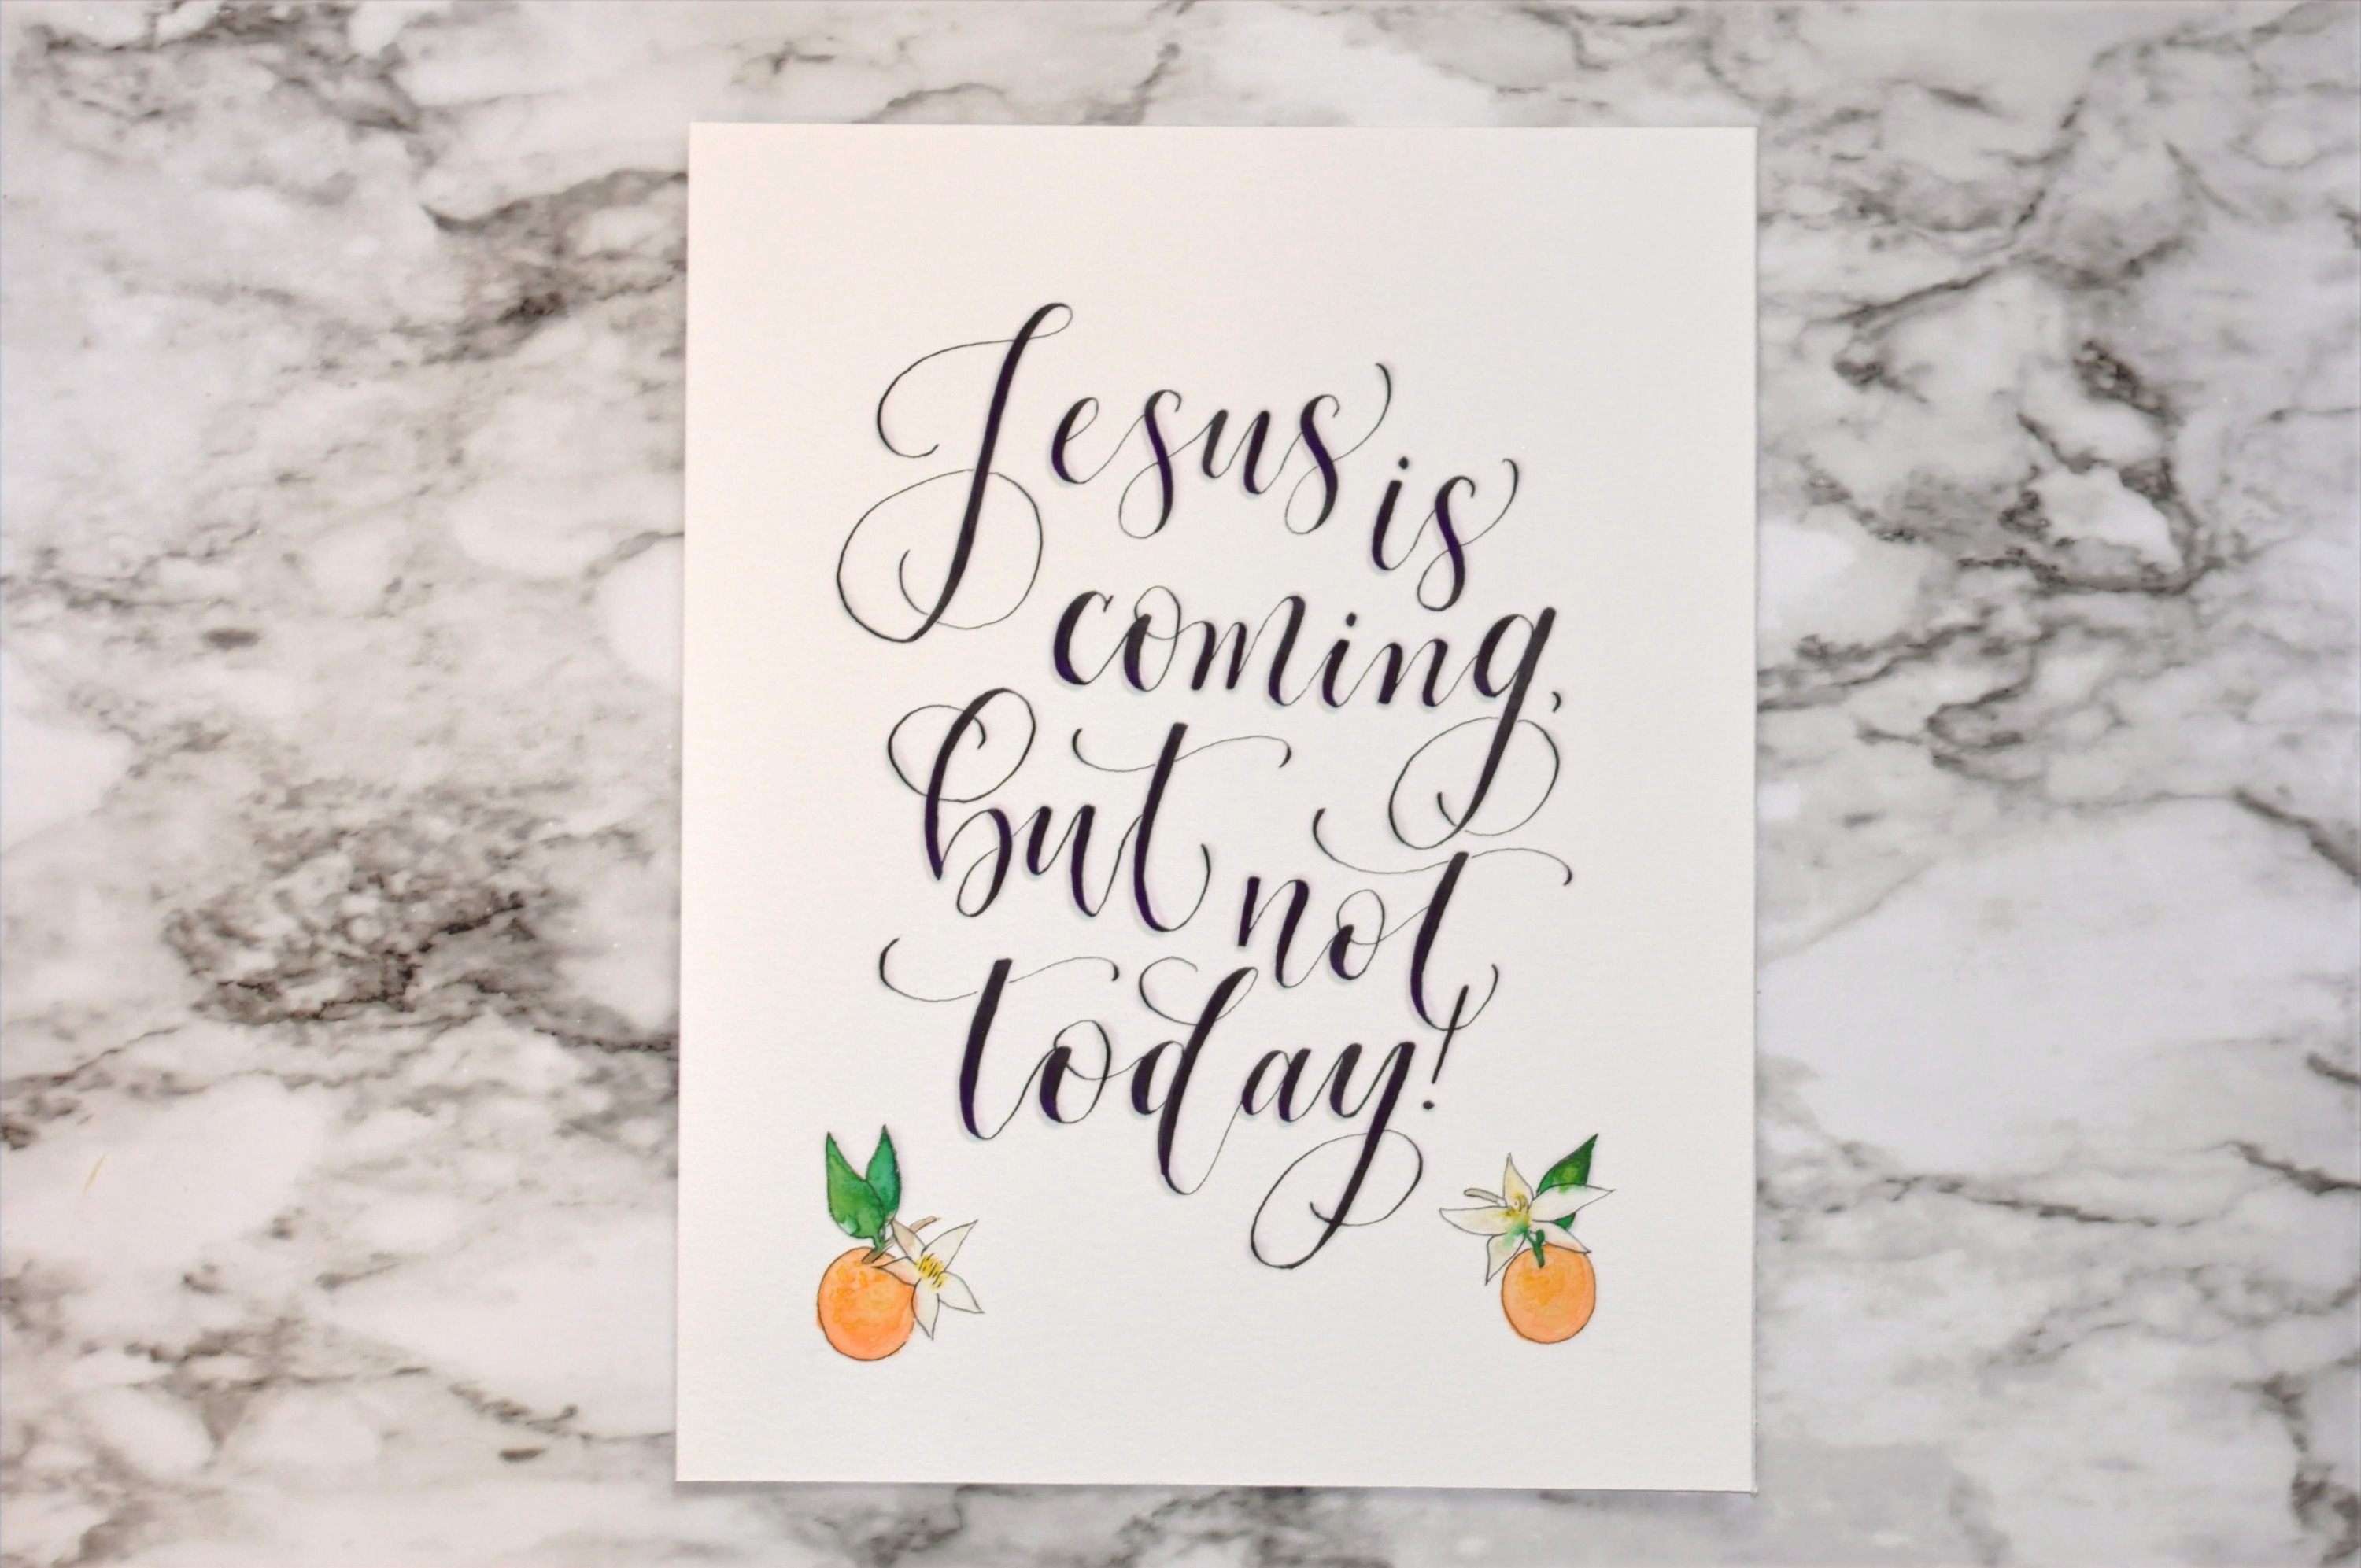 Jesus is
coming,
but not
today!